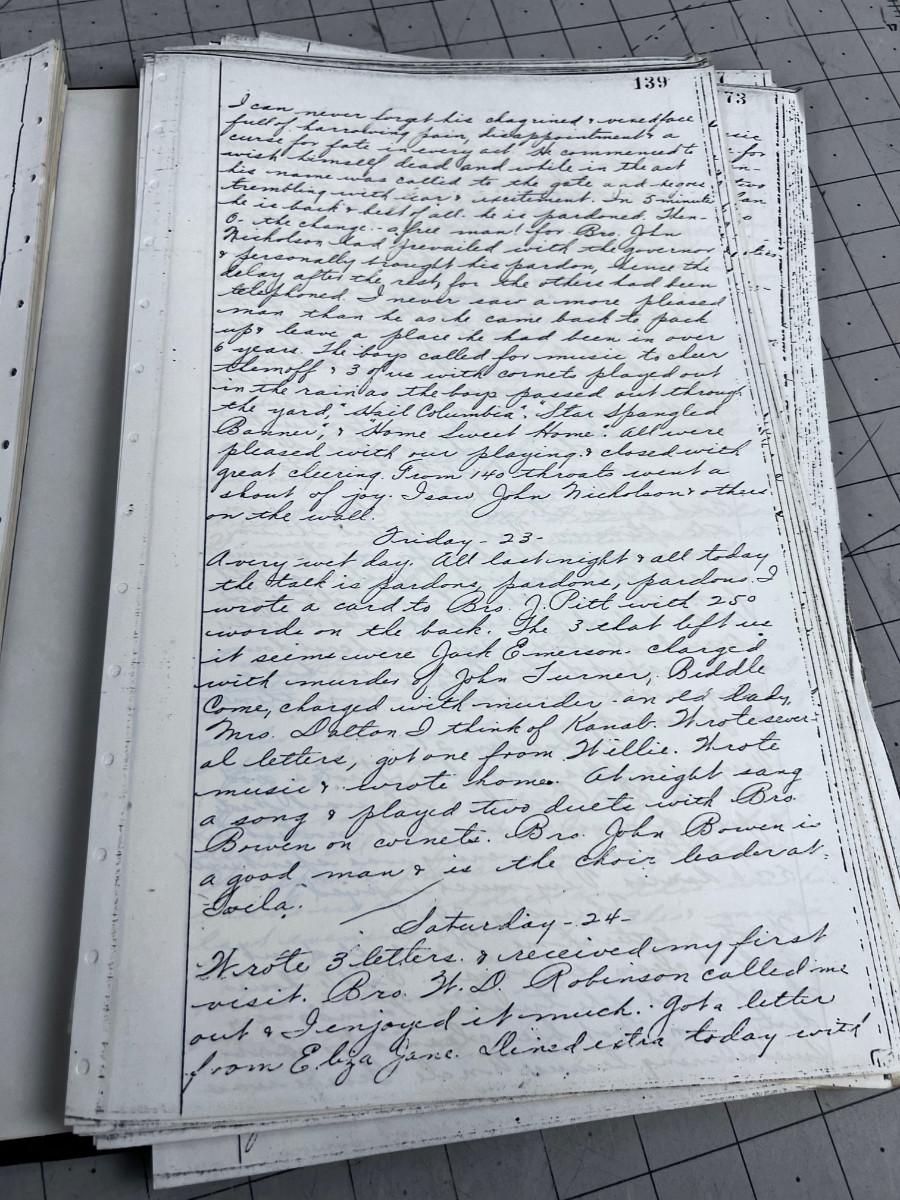 139
I can never forget his chagrined & vexed face
full of harrowing pain, disappointment & a
curse for fate in every act. He commenced to
wish himself dead and while in the act
his name was called to the gate and he goes
trembling with & excitement. In 5 minutes
he is back & best of all he is pardoned. Then-
O- the change- a free man! for Bro. John
Nicholson had prevailed with the governor
& personally brought his pardon, hence the
delay after the rest, for the others had been
telephoned. I never saw a more pleased
man than he as he came back to pack
up & leave a place he had been in over
6 years. The boys called for music to cheer
them off & 3 of us with cornets played out
in the rain as the boys passed out through
the yard, "Hail Columbia", "Star Spangled
Banner", & "Home Sweet Home". All were
pleased with our playing & closed with
great cheering. From 140 throats went a
shout of joy. I saw John Nicholson & others
on the wall.
Friday - 23-
A very wet day. All last night & all today
the talk is pardons, pardons, pardons. I
wrote a card to Bro. J. Pitt with 250
words on the back. The 3 that left us
it seems were Jack Emerson charged
with murder of John Turner, Biddle
Come, charged with murder - an old lady,
Mrs. Dalton I think of Kanab. Wrote sever-
al letters, got one from Willie. Wrote
music & wrote home. At night sang
a song & played two duets with Bro.
Bowen on cornets. Bro. John Bowen is
a good man & is the choir leader at
Toela.
Saturday - 24-
Wrote 3 letters & received my first
visit. Bro. W. D. Robinson called me
out & I enjoyed it much. Got a letter
from Eliza Jane. Dined extra today with
73